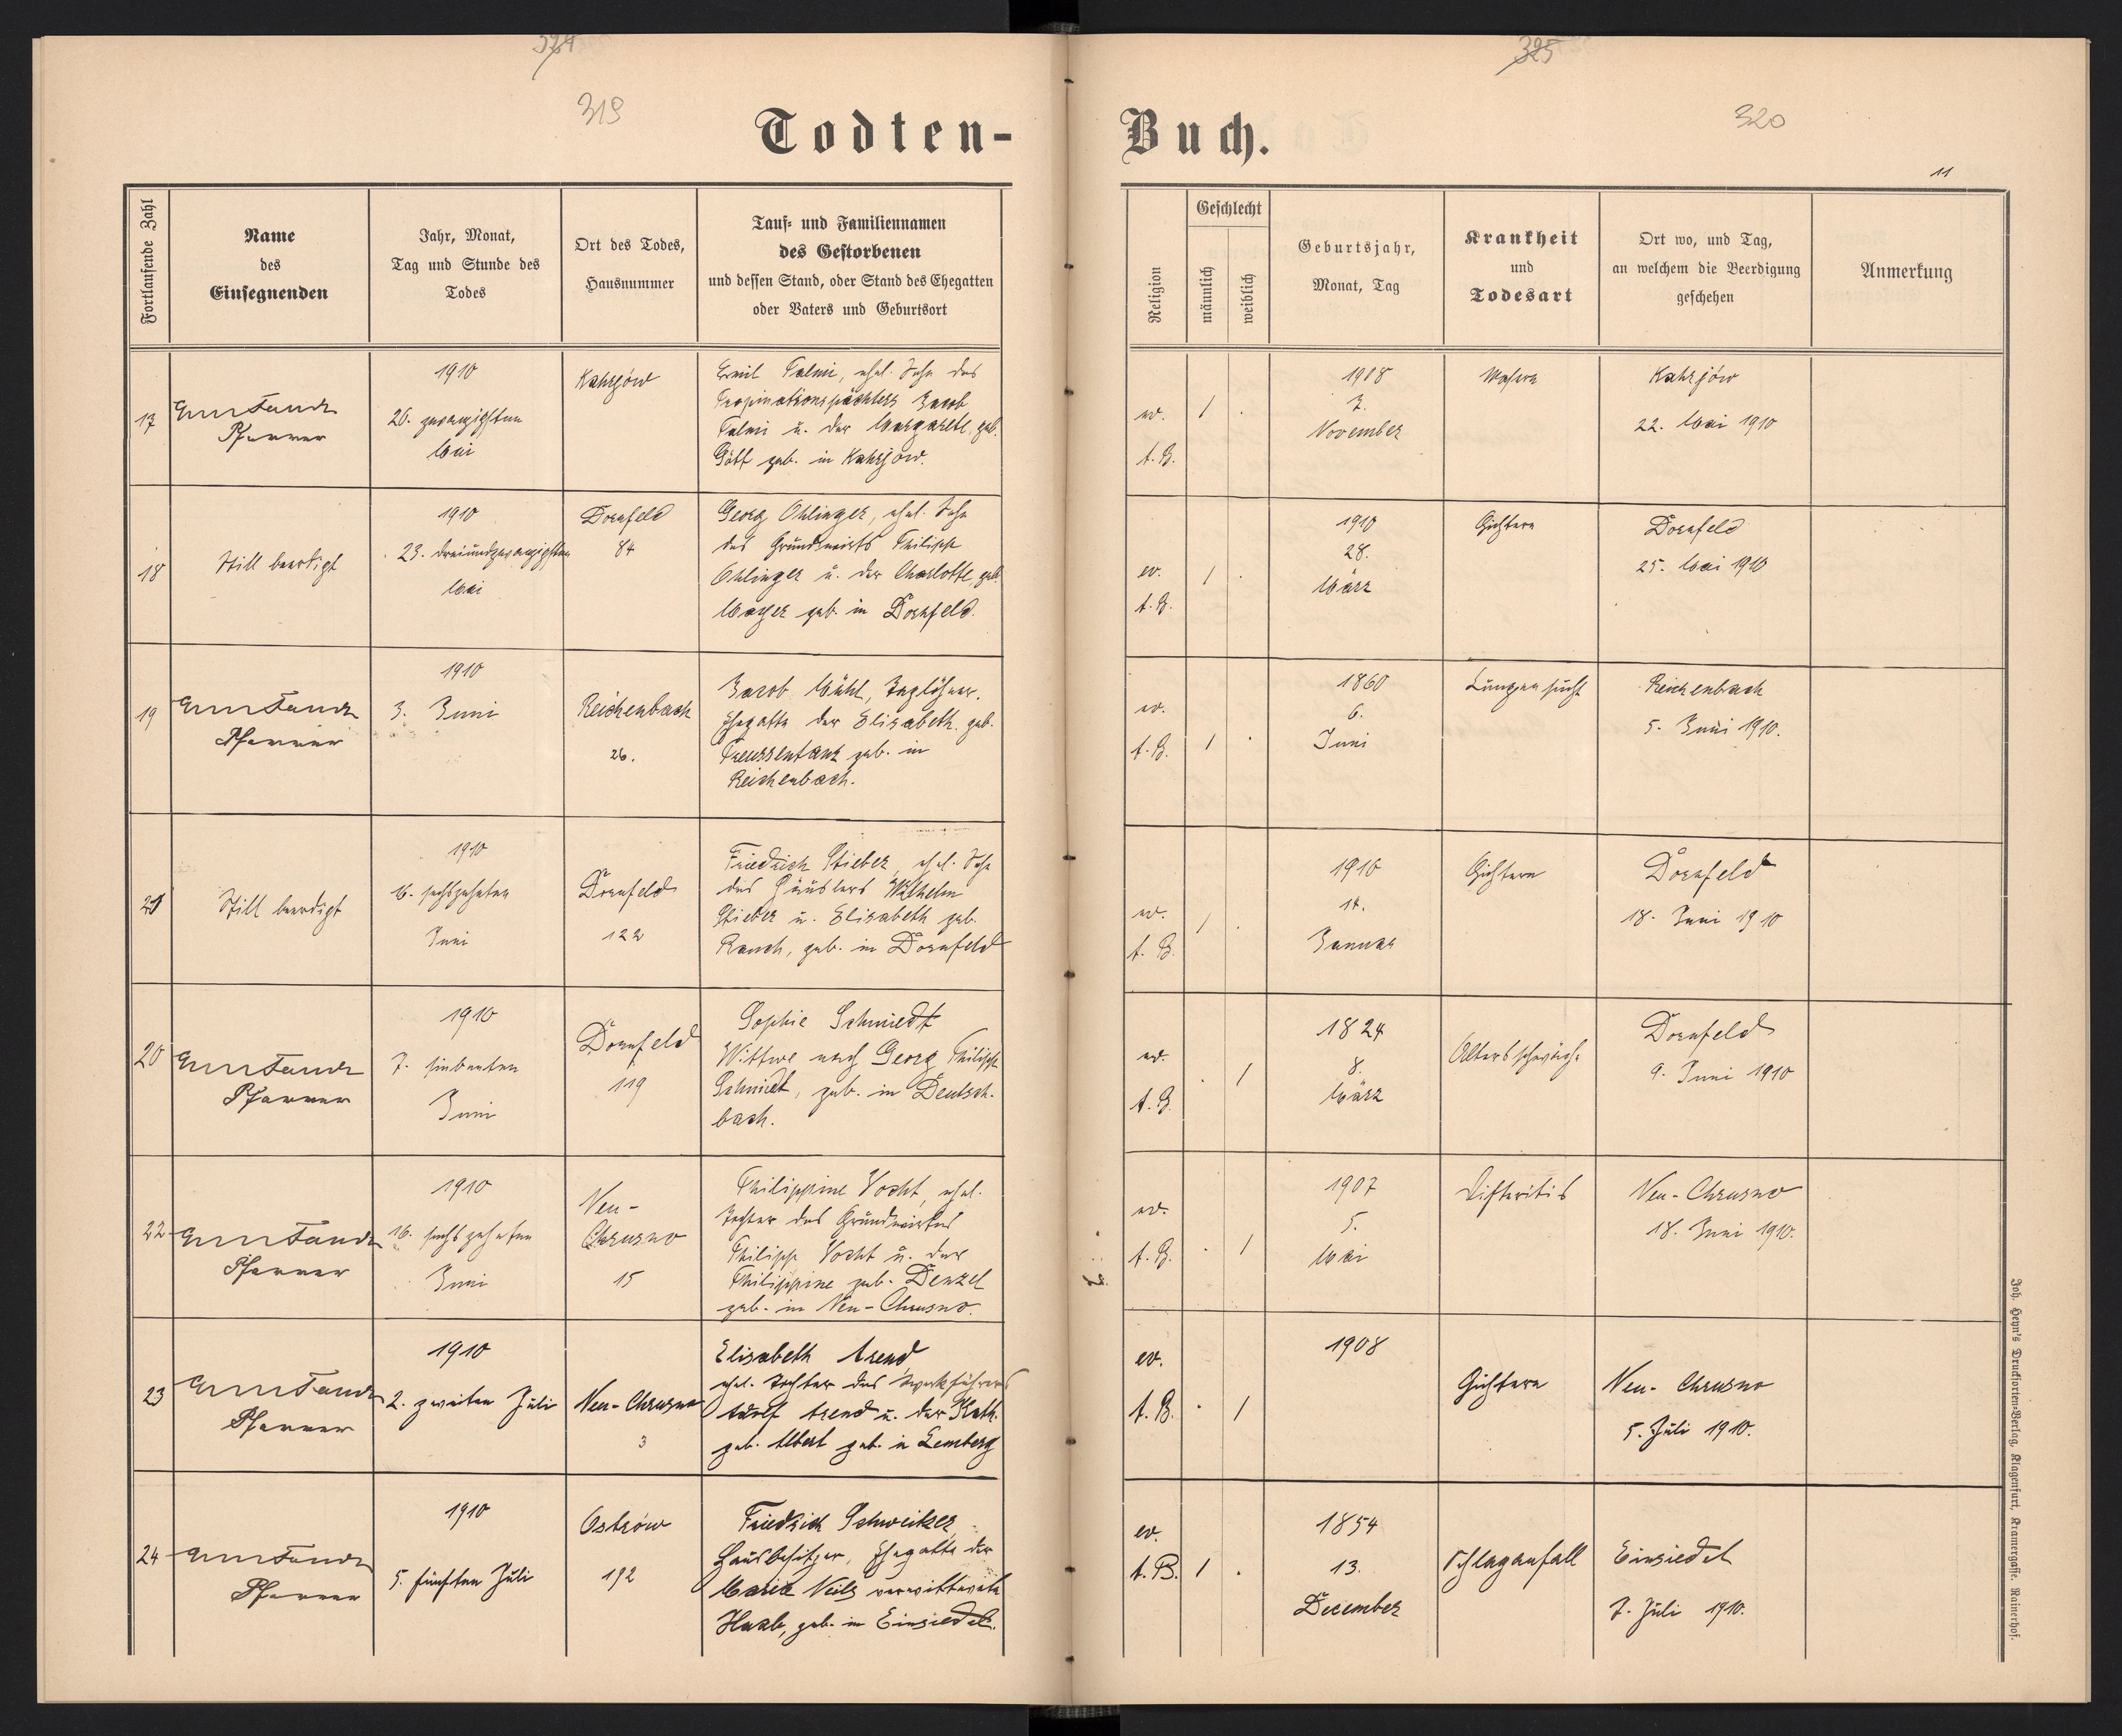 324
325
319
320
11
Todten-
Buch.
Fortlaufende Zahl
Name
des
Einsegnenden
Jahr, Monat,
Tag und Stunde des
Todes
Ort des Todes,
Hausnummer
Tauf- und Familiennamen
des Gestorbenen
und dessen Stand, oder Stand des Ehegatten
oder Vaters und Geburtsort
Religion
Geschlecht
männlich
weiblich
Geburtsjahr,
Monat, Tag
Krankheit
und
Todesart
Ort wo, und Tag,
an welchem die Beerdigung
geschehen
Anmerkung
17
Pfarrer
1910
20. zwanzigsten
Mai
Kahujów
Emil Talmi, ehel. Sohn des
Propinationspächters Jacob
Talmi u. der Margarethe, geb.
Gött geb. in
ev.
A. B.
1
.
1908
7.
November
Masern
22. Mai 1910
18
Still beerdigt
1910
23. dreiundzwanzigsten
Mai
Dornfeld
84
Georg Ohlinger, ehel. Sohn
des Grundwirts Philipp
Ohlinger u. der Charlotte geb.
Mayer geb. in Dornfeld.
ev.
A. B.
1
.
1910
28.
März
Gichtern
Dornfeld
25. Mai 1910
19
Pfarrer
1910
3. Juni
Reichenbach
26.
Jacob Mühl, Taglöhner,
Ehegatte der Elisabeth geb.
geb. in
Reichenbach.
ev.
A. B.
1
.
1860
6.
Juni
Lungensucht
Reichenbach
5. Juni 1910.
21
Still beerdigt
1910
16. sechszehnten
Juni
Dornfeld
122
Friedrich Stieber, ehel. Sohn
des Häuslers Wilhelm
Stieber u. Elisabeth geb.
Rauch, geb. in Dornfeld
ev.
A. B.
1
.
1910
14.
Januar
Gichtern
Dornfeld
18. Juni 1910
20
Pfarrer
1910
7. siebenten
Juni
Dornfeld
119
Sophie Schmiedt
Wittwe nach Georg Philipp
Schmiedt, geb. in Deutsch-
bach.
ev.
A. B.
.
1
1824
8.
März
Altersschwäche
Dornfeld
9. Juni 1910
22
Pfarrer
1910
16. sechszehnten
Juni
Neu-
Chrusno
15
Philippine Vocht, ehel.
Tochter des Grundwirtes
Philipp Vocht u. der
Philippine geb. Denzel
geb. in Neu-Chrusno.
ev.
A. B.
.
1
1907
5.
Mai
Difteritis
Neu-Chrusno
18. Juni 1910.
23
Pfarrer
1910
2. zweiten Juli
Neu-Chrusno
3
Elisabeth Arend
ehel. Tochter des Werkführers
Adolf Arend u. der Kath.
geb. Albert geb. in Lemberg
ev.
A. B.
.
1
1908
Gichtern
Neu-Chrusno
5. Juli 1910.
24
Pfarrer
1910
5. fünften Juli
Ostrów
192
Friedrich Schweitzer,
Hausbesitzer, Ehegatte der
Marie Neils verwittwete
Haab, geb. in Einsiedel.
ev.
A. B.
1
.
1854
13.
December
Schlaganfall
Einsiedel
7. Juli 1910.
Joh. Heyn's Drucksorten-Verlag, Klagenfurt, Kramergasse, Rainerhof.